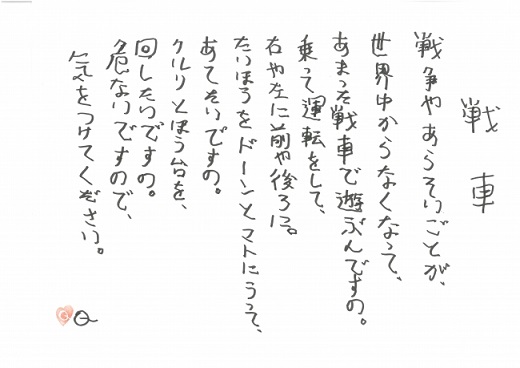 戦車
戦争やあらそいごとが、
世界中からなくなって、
あまった戦車で遊ぶんですの。
乗って運転をして、
右や左に前や後ろに。
たいほうをドーンとマトにうって、
あてたいですの。
クルリとほう台を、
回したいですの。
危ないですので、
気をつけてください。